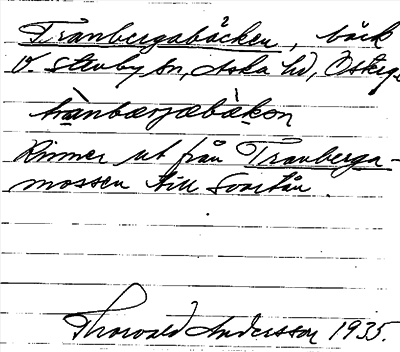 Tranbergabäcken, bäck
V. Stenby sn, Aska hd, Östergö
trànbærjæbàkon
Rinner ut från Tranberga-
mossen till Svartån.
Thorvald Andersson 1935.